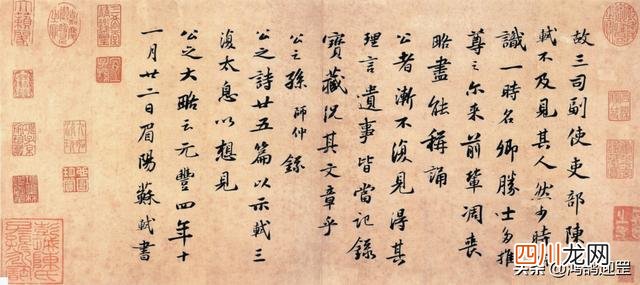 故三司副使吏部陳
軾不及見其人然少時
識一時名卿勝士多推
尊之尔来前輩凋喪
略盡能稱誦
公者漸不復見得其
理言遺事皆當記錄
寶藏況其文章乎
公之孫師仲錄
公之詩廿五篇以示軾三
復太息以想見
公之大略云元豐四年十
一月廿二日眉陽蘇軾書
四川龙网
头条 @鸿鹄迎罡